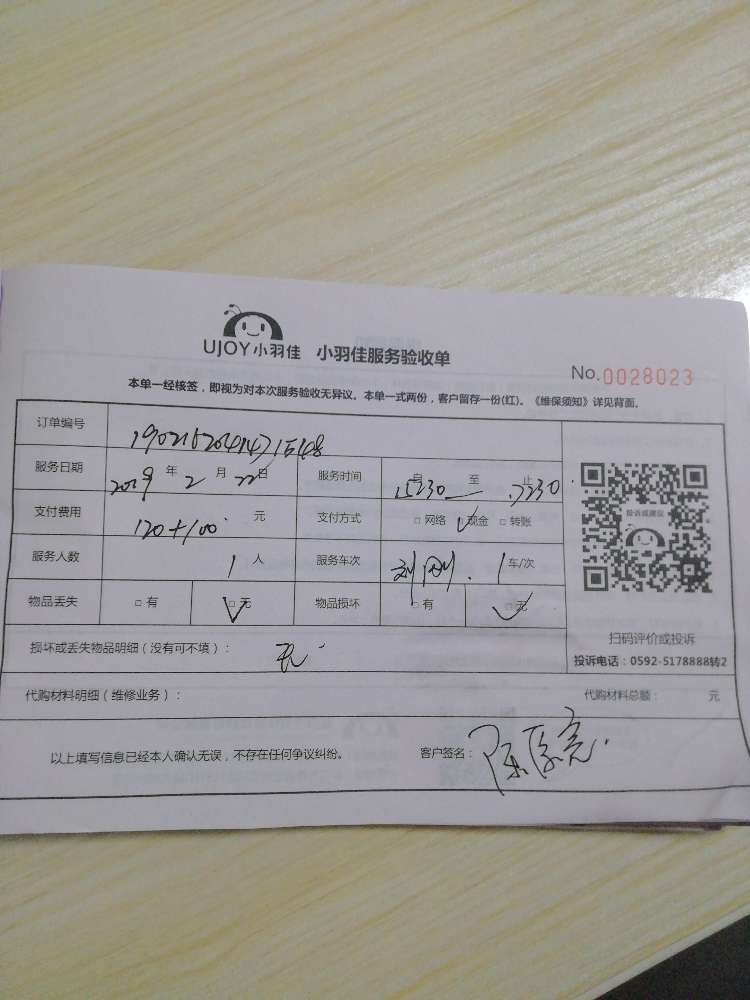 UJOY小羽佳 小羽佳服务验收单
No.0028023
本单一经核签，即视为对本次服务验收无异议。本单一式两份，客户留存一份(红)。《维保须知》详见背面。
订单编号
服务日期 2019 年 2 月 22 日 服务时间 自 15230 至 17230 止
支付费用 120+100 元 支付方式 □ 网络 ✓现金 □ 转账
服务人数 1 人 服务车次 刘刚. 1 车/次
物品丢失 □ 有 ☑ 无 物品损坏 □ 有 ☑ 无
投诉或建议
扫码评价或投诉
投诉电话：0592-5178888转2
损坏或丢失物品明细（没有可不填）： 无
代购材料明细（维修业务）： 代购材料总额： 元
以上填写信息已经本人确认无误，不存在任何争议纠纷。 客户签名：